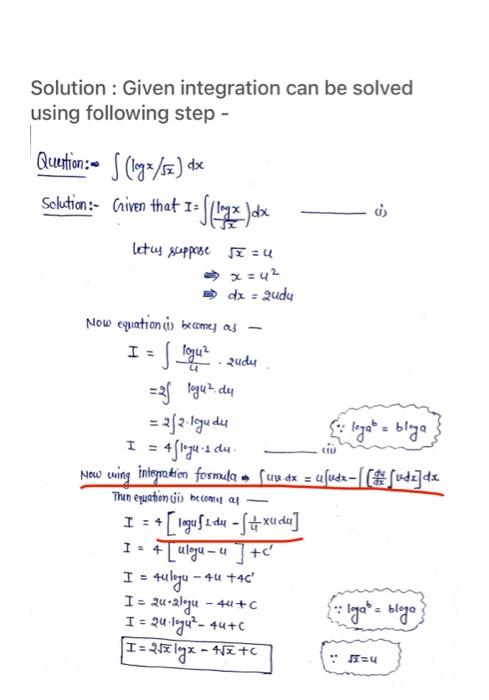 Solution : Given integration can be solved
using following step -
Question:- ∫(logx/√x) dx
Solution:- Given that I = ∫(logx/√x) dx ——— (i)
let us suppose √x = u
⇒ x = u²
⇒ dx = 2udu
Now equation (i) becomes as —
I = ∫ logu²/u . 2udu.
= 2∫ logu². du
= 2∫2.logu du
I = 4∫logu.1 du. ——— (ii)
{∵ loga^b = bloga
Now using integration formula → ∫uv dx = u∫vdx - ∫[du/dx ∫vdx] dx
Then equation (ii) becomes as —
I = 4[logu∫1.du - ∫1/u × u du]
I = 4[ulogu - u] + c'
I = 4ulogu - 4u + 4c'
I = 2u.2logu - 4u + c
{∵ loga^b = bloga
I = 2u.logu² - 4u + c
I = 2√x logx - 4√x + c
∵ √x = u